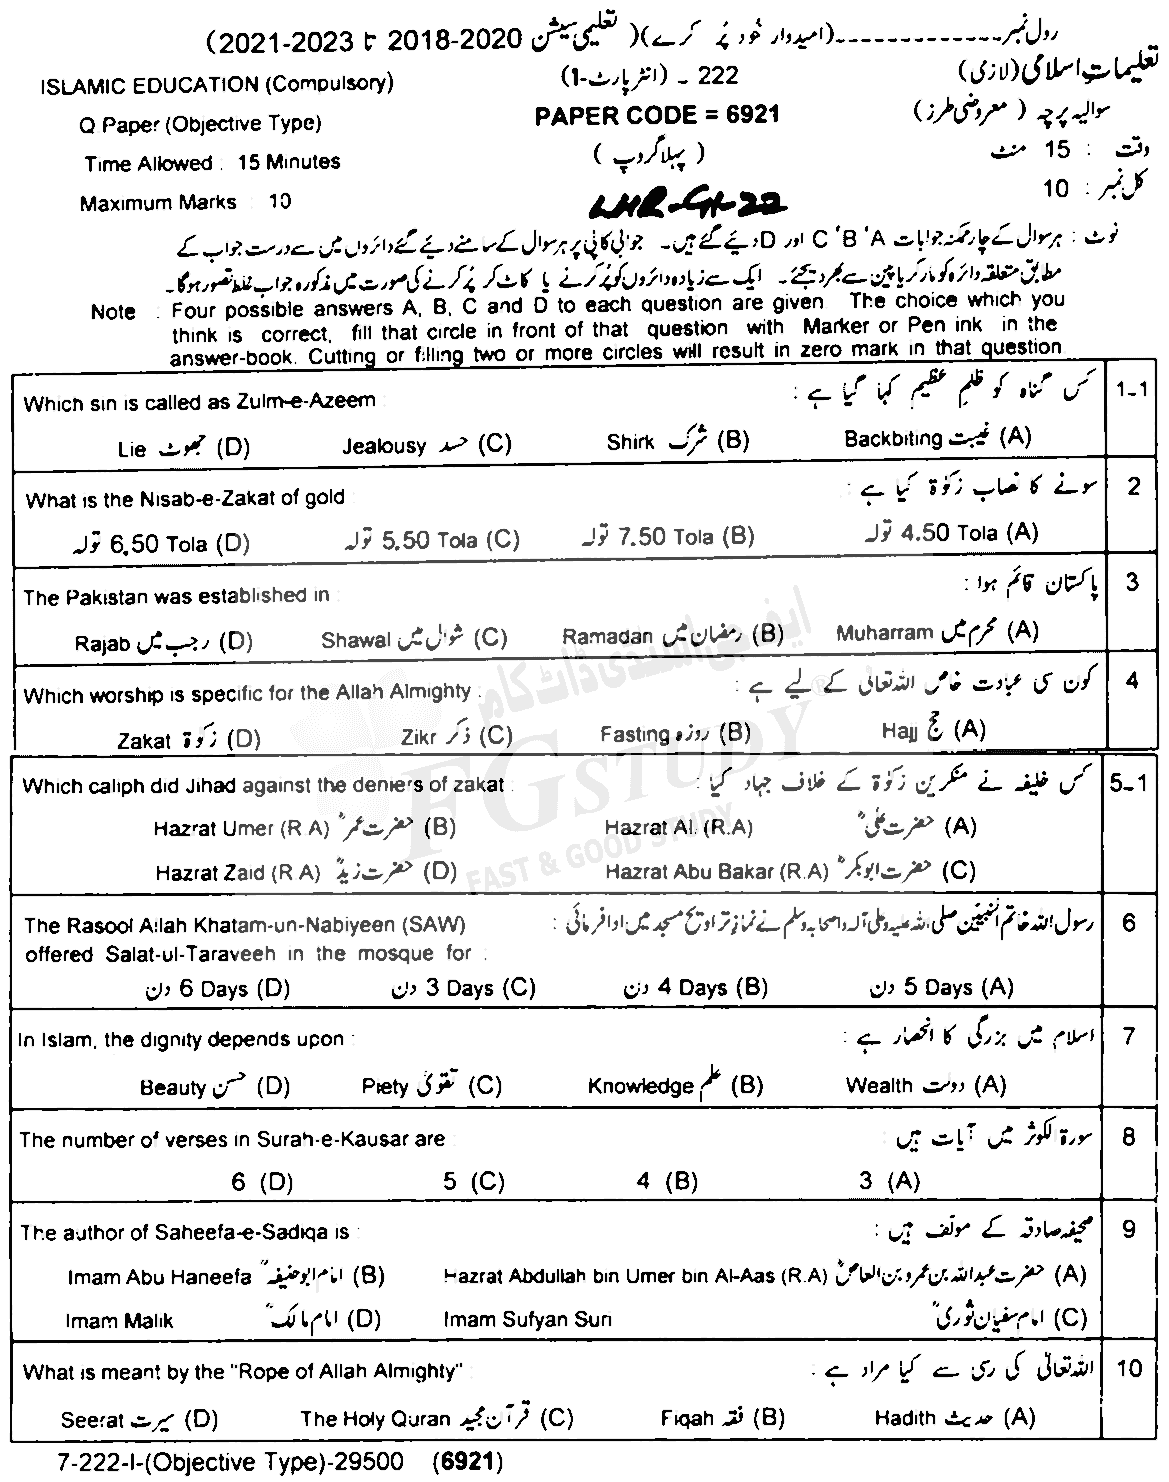 رول نمبر ------------(امیدوار خود پُر کرے)( تعلیمی سیشن 2020-2018 تا 2023-2021)
تعلیمات اسلامی (لازمی)
222 - (انٹر پارٹ-1)
ISLAMIC EDUCATION (Compulsory)
سوالیہ پرچہ ( معروضی طرز)
PAPER CODE = 6921
Q Paper (Objective Type)
وقت : 15 منٹ
( پہلا گروپ )
Time Allowed : 15 Minutes
کل نمبر : 10
LHR-G1-22
Maximum Marks : 10
نوٹ : ہر سوال کے چار ممکنہ جوابات A، B، C اور D دیئے گئے ہیں۔ جوابی کاپی پر ہر سوال کے سامنے دیئے گئے دائروں میں سے درست جواب کے
مطابق متعلقہ دائرہ کو مارکر یا پین سے بھر دیجئے۔ ایک سے زیادہ دائروں کو پُر کرنے یا کاٹ کر پُر کرنے کی صورت میں مذکورہ جواب غلط تصور ہوگا۔
Note : Four possible answers A, B, C and D to each question are given. The choice which you
think is correct, fill that circle in front of that question with Marker or Pen ink in the
answer-book. Cutting or filling two or more circles will result in zero mark in that question
1-1 کس گناہ کو ظلمِ عظیم کہا گیا ہے :
Which sin is called as Zulm-e-Azeem :
(A) غیبت Backbiting (B) شرک Shirk (C) حسد Jealousy (D) جھوٹ Lie
2 سونے کا نصاب زکوٰۃ کیا ہے :
What is the Nisab-e-Zakat of gold :
(A) 4.50 Tola تولہ (B) 7.50 Tola تولہ (C) 5.50 Tola تولہ (D) 6.50 Tola تولہ
3 پاکستان قائم ہوا :
The Pakistan was established in :
(A) محرم میں Muharram (B) رمضان میں Ramadan (C) شوال میں Shawal (D) رجب میں Rajab
4 کون سی عبادت خاص اللہ تعالیٰ کے لیے ہے :
Which worship is specific for the Allah Almighty :
(A) حج Hajj (B) روزہ Fasting (C) ذکر Zikr (D) زکوٰۃ Zakat
5-1 کس خلیفہ نے منکرین زکوٰۃ کے خلاف جہاد کیا :
Which caliph did Jihad against the deniers of zakat :
(A) حضرت علیؓ Hazrat Al. (R.A) (B) حضرت عمرؓ Hazrat Umer (R A)
(C) حضرت ابوبکرؓ Hazrat Abu Bakar (R.A) (D) حضرت زیدؓ Hazrat Zaid (R A)
6 رسول اللہ خاتم النبیین صلی اللہ علیہ وعلی آلہ واصحابہ وسلم نے نماز تراویح مسجد میں ادا فرمائی :
The Rasool Allah Khatam-un-Nabiyeen (SAW)
offered Salat-ul-Taraveeh in the mosque for :
(A) 5 Days دن (B) 4 Days دن (C) 3 Days دن (D) 6 Days دن
7 اسلام میں بزرگی کا انحصار ہے :
In Islam, the dignity depends upon :
(A) دولت Wealth (B) علم Knowledge (C) تقویٰ Piety (D) حسن Beauty
8 سورۃ الکوثر میں آیات ہیں :
The number of verses in Surah-e-Kausar are :
(A) 3 (B) 4 (C) 5 (D) 6
9 صحیفہ صادقہ کے مولف ہیں :
The author of Saheefa-e-Sadiqa is :
(A) حضرت عبداللہ بن عمرو بن العاصؓ Hazrat Abdullah bin Umer bin Al-Aas (R.A) (B) امام ابو حنیفہؒ Imam Abu Haneefa
(C) امام سفیان ثوریؒ Imam Sufyan Suri (D) امام مالکؒ Imam Malik
10 اللہ تعالیٰ کی رسی سے کیا مراد ہے :
What is meant by the "Rope of Allah Almighty" :
(A) حدیث Hadith (B) فقہ Fiqah (C) قرآن مجید The Holy Quran (D) سیرت Seerat
7-222-I-(Objective Type)-29500 (6921)
ایف جی اسٹڈی ڈاٹ کام
FG STUDY ®
FAST & GOOD STUDY